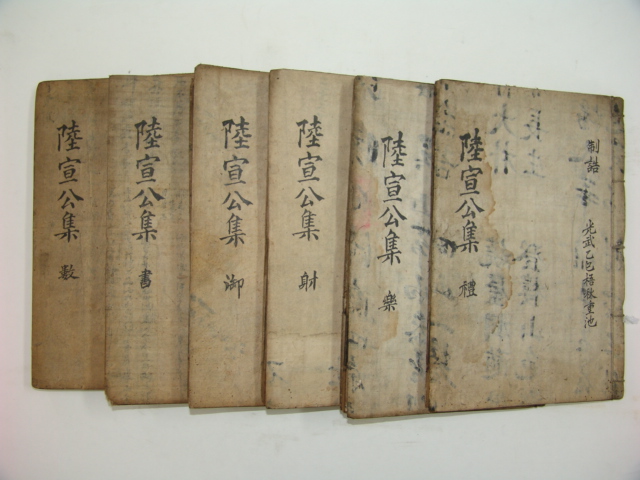 制誥
光武乙巳梧秋重池
陸宣公集 禮
陸宣公集 樂
陸宣公集 射
陸宣公集 御
陸宣公集 書
陸宣公集 数